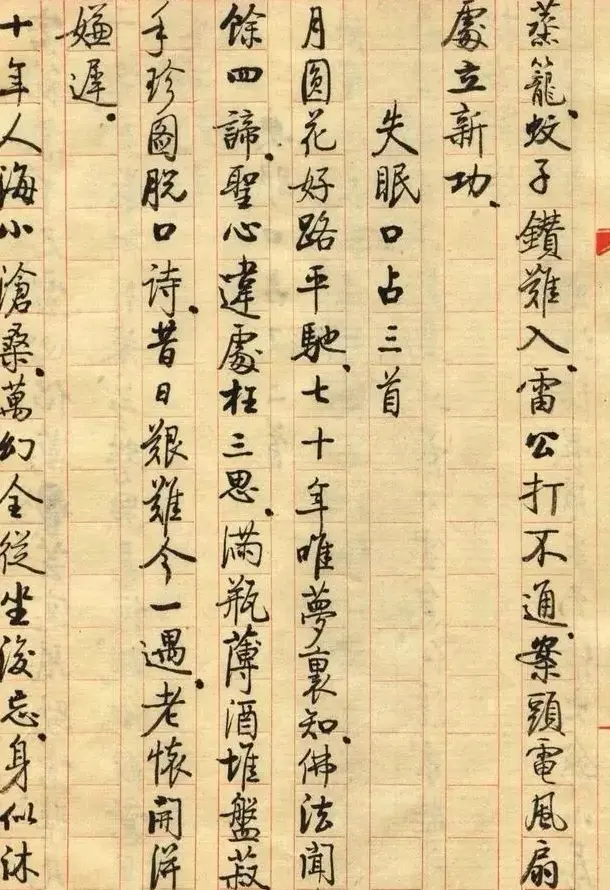 蒸籠蚊子鑽難入雷公打不通案頭電風扇
處立新功
失眠口占三首
月圓花好路平馳七十年唯夢裏知佛法聞
餘四諦聖心違處枉三思滿瓶薄酒堆盤菽
手珍圖脫口詩昔日艱難今一遇老懷開洴
嫌遲
十年人海小滄桑萬幻全從坐後忘身似沐